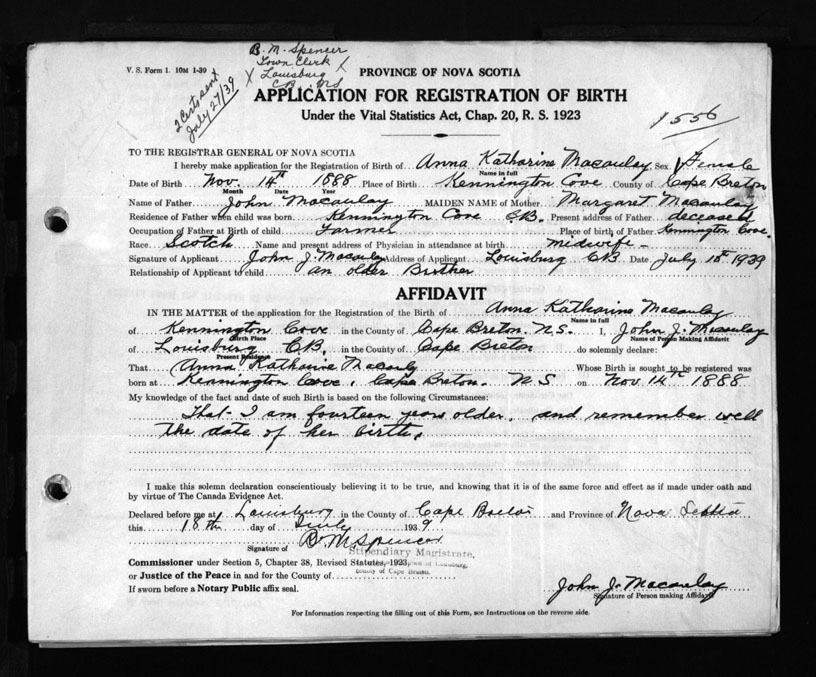 B. M. Spencer
Town Clerk
Louisburg
C.B. N.S
V. S. Form 1. 10M 1-39
2 Certs sent
July 27/39
PROVINCE OF NOVA SCOTIA
APPLICATION FOR REGISTRATION OF BIRTH
Under the Vital Statistics Act, Chap. 20, R. S. 1923
1556
TO THE REGISTRAR GENERAL OF NOVA SCOTIA
I hereby make application for the Registration of Birth of Anna Katharine Macaulay Sex Female
Name in full
Date of Birth Nov. 14th 1888 Place of Birth Kennington Cove County of Cape Breton
Month Date Year
Name of Father John Macaulay MAIDEN NAME of Mother Margaret Macaulay
Residence of Father when child was born Kennington Cove C.B. Present address of Father deceased
Occupation of Father at Birth of child Farmer Place of birth of Father Kennington Cove.
Race Scotch Name and present address of Physician in attendance at birth midwife -
Signature of Applicant John J. Macaulay Address of Applicant Louisburg CB Date July 18th 1939
Relationship of Applicant to child an older Brother
AFFIDAVIT
IN THE MATTER of the application for the Registration of the Birth of Anna Katharine Macaulay
Name in full
of Kennington Cove in the County of Cape Breton. N.S. I, John J. Macaulay
Birth Place Name of Person Making Affidavit
of Louisburg CB. in the County of Cape Breton do solemnly declare:
Present Residence
That Anna Katharine Macauly Whose Birth is sought to be registered was
born at Kennington Cove, Cape Breton. N.S on Nov 14th 1888
My knowledge of the fact and date of such Birth is based on the following Circumstances:
That I am fourteen years older, and remember well
the date of her birth.
I make this solemn declaration conscientiously believing it to be true, and knowing that it is of the same force and effect as if made under oath and
by virtue of The Canada Evidence Act.
Declared before me at Louisburg in the County of Cape Breton and Province of Nova Scotia
this 18th day of July 1939
Signature of B. M. Spencer
Stipendiary Magistrate,
Commissioner under Section 5, Chapter 38, Revised Statutes, 1923, Town of Louisburg,
or Justice of the Peace in and for the County of County of Cape Breton.
If sworn before a Notary Public affix seal. John J. Macaulay
Signature of Person making Affidavit
For Information respecting the filling out of this Form, see Instructions on the reverse side.